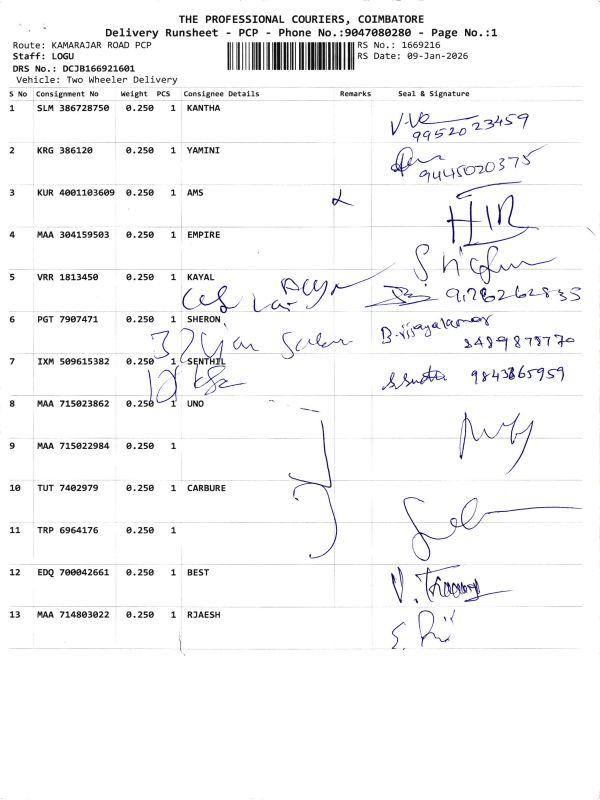 THE PROFESSIONAL COURIERS, COIMBATORE
Delivery Runsheet - PCP - Phone No.:9047080280 - Page No.:1
Route: KAMARAJAR ROAD PCP RS No.: 1669216
Staff: LOGU RS Date: 09-Jan-2026
DRS No.: DCJB166921601
Vehicle: Two Wheeler Delivery
S No Consignment No Weight PCS Consignee Details Remarks Seal & Signature
1 SLM 386728750 0.250 1 KANTHA
9952023459
2 KRG 386120 0.250 1 YAMINI
9445020375
3 KUR 4001103609 0.250 1 AMS
4 MAA 304159503 0.250 1 EMPIRE
5 VRR 1813450 0.250 1 KAYAL
6 PGT 7907471 0.250 1 SHERON
B.vijayalaxmar
8489878770
7 IXM 509615382 0.250 1 SENTHIL
9843865959
8 MAA 715023862 0.250 1 UNO
9 MAA 715022984 0.250 1
10 TUT 7402979 0.250 1 CARBURE
11 TRP 6964176 0.250 1
12 EDQ 700042661 0.250 1 BEST
13 MAA 714803022 0.250 1 RJAESH